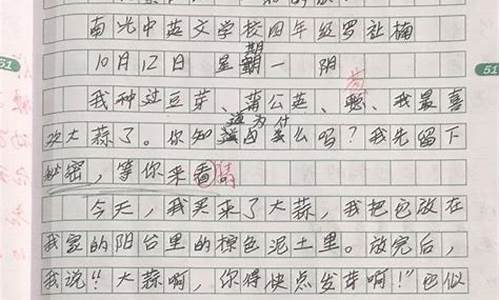 51
51
南光中英文学校四年级罗祉楠
10月12日 星期一 阴
我种过豆芽、蒲公英、葱、我最喜
欢大蒜了。你知道为什么吗？我先留下
秘密，等你来猜。
今天，我买来了大蒜，我把它放在
我家的阳台里的棕色泥土里。放完后，
我说“大蒜啊，你得快点发芽啊！”它似